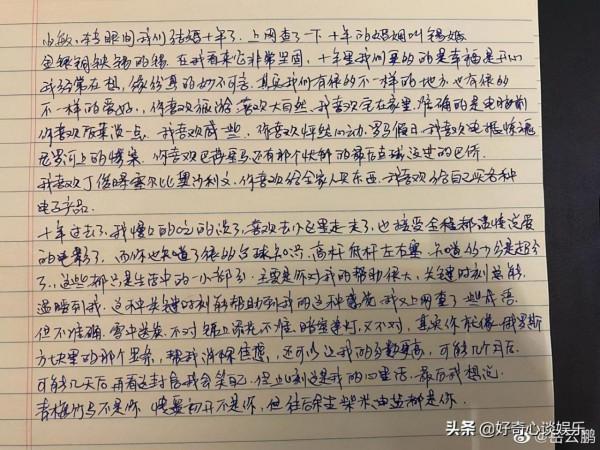 小敏,转眼间我们结婚十年了,上网查了一下十年的婚姻叫锡婚
金银铜铁锡的锡,在我看来它非常坚固,十年里我们更多的是幸福是开心
我经常在想,缘份真的妙不可言,其实我们有很多不一样的地方也有很多
不一样的爱好,你喜欢旅游喜欢大自然,我喜欢宅在家里准确的是电脑前
你喜欢后来没一点,我喜欢 一些,你喜欢怦然心动,罗马假日,我喜欢电锯惊魂
尼罗河上的惨案,你喜欢巴萨皇马还有那个快船的最后去过的巴乔
我喜欢丁俊晖塞尔比奥沙利文,你喜欢给全家人买东西,我喜欢给自己买各种
电子产品.
十年过去了,我慢慢的吃的淡了,喜欢去小区里走走了,也接受全程都谈情说爱
的电影了,而你也知道了很多台球知识,高杆低杆左右塞,知道 分是超分
了,这些都只是生活中的一小部分,主要是你对我的帮助很大,关键时刻总能
温暖到我,这种关键时刻能帮助到我的这种感觉,我又上网查了一些成语
但不准确,雪中送炭,不对锦上添花不准,暗室逢灯,又不对,其实你就像俄罗斯
方块里的那个竖条,帮我消除焦虑,还可以让我的分数变高,可能几个月后
可能几天后再看这封信我会笑自己,但此刻这是我的心里话,最后我想说
青梅竹马不是你 情窦初开不是你,但往后余生柴米油盐都是你.
头条 @好奇心谈娱乐
@岳云鹏